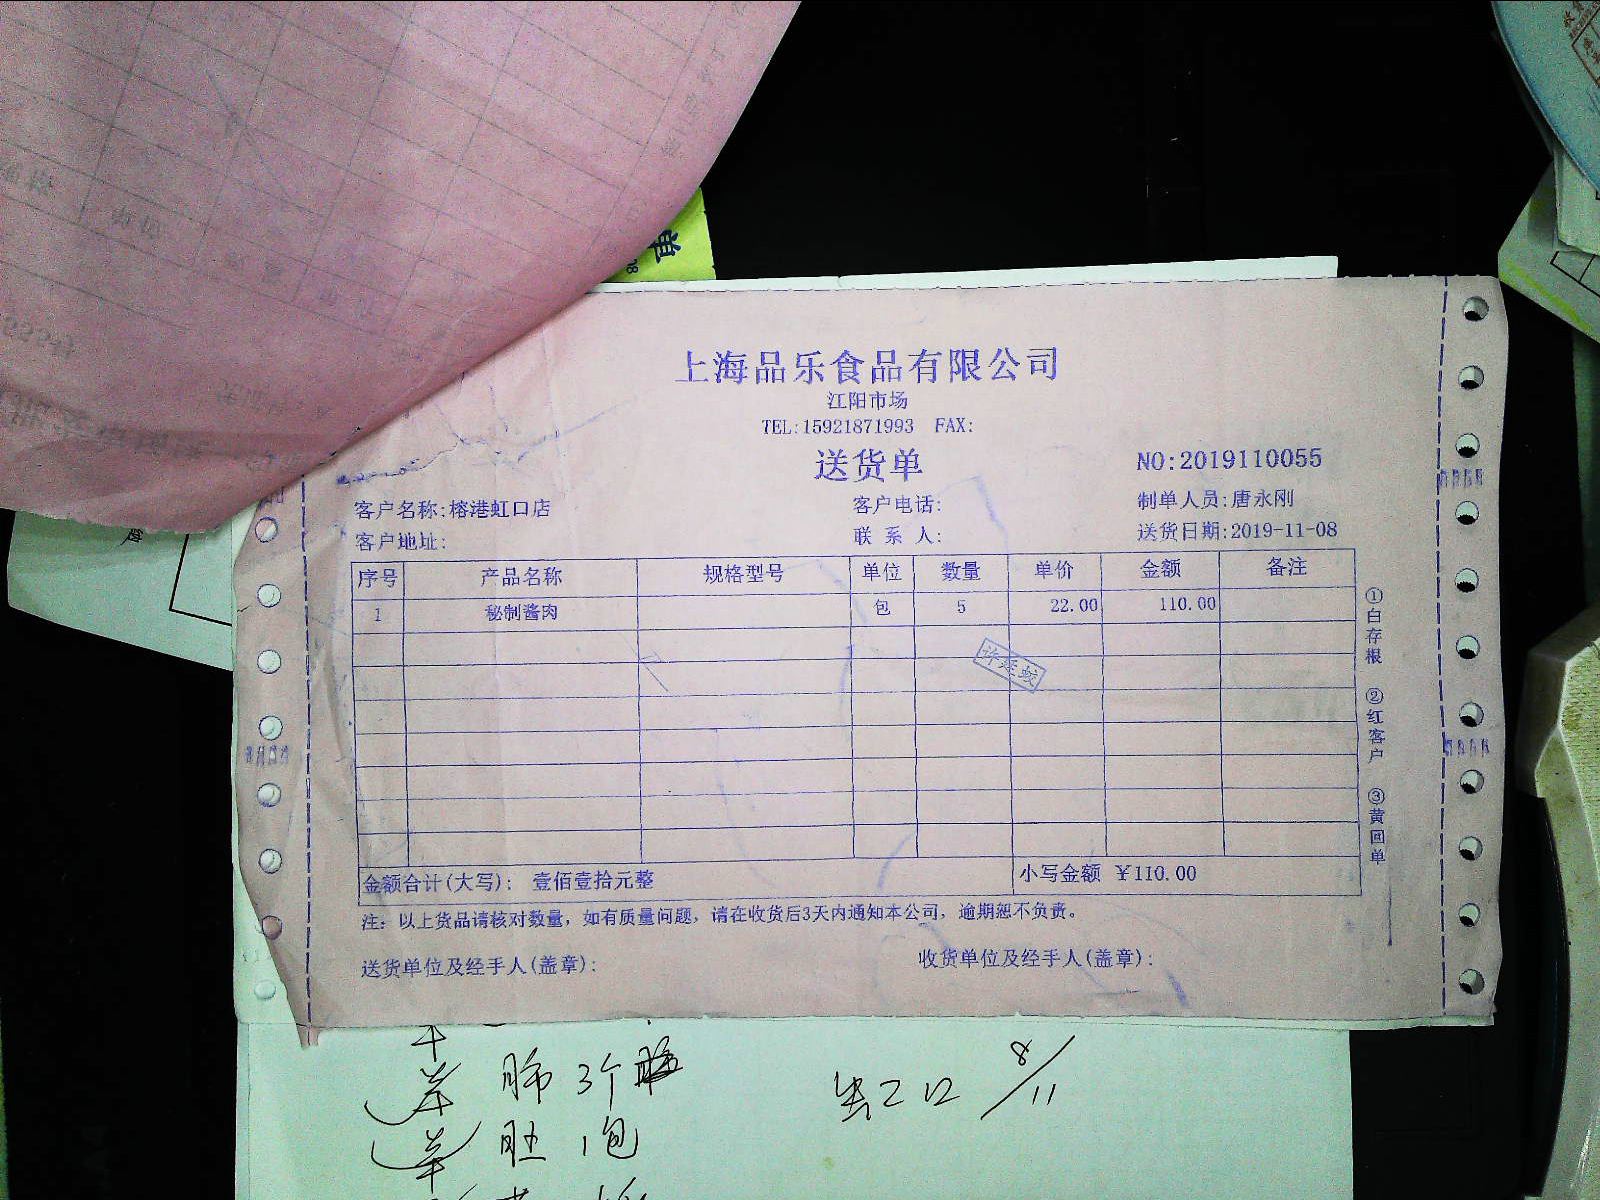 单
上海品乐食品有限公司
江阳市场
TEL:15921871993 FAX:
送货单
NO:2019110055
客户名称:榕港虹口店 客户电话: 制单人员:唐永刚
客户地址: 联系人: 送货日期:2019-11-08
序号 产品名称 规格型号 单位 数量 单价 金额 备注
1 秘制酱肉 包 5 22.00 110.00
许延蛟
金额合计(大写): 壹佰壹拾元整 小写金额 ¥110.00
注: 以上货品请核对数量, 如有质量问题, 请在收货后3天内通知本公司, 逾期恕不负责。
送货单位及经手人(盖章): 收货单位及经手人(盖章):
①白存根 ②红客户 ③黄回单
肺 3个
虹口 8/11
肚 1包